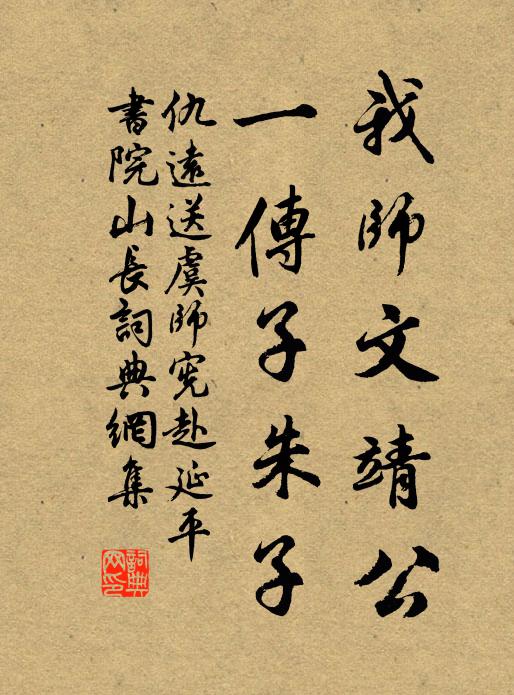 我師文靖公
一傳子朱子
仇遠送虞師憲赴延平
書院山長詞典網集
詞典網印